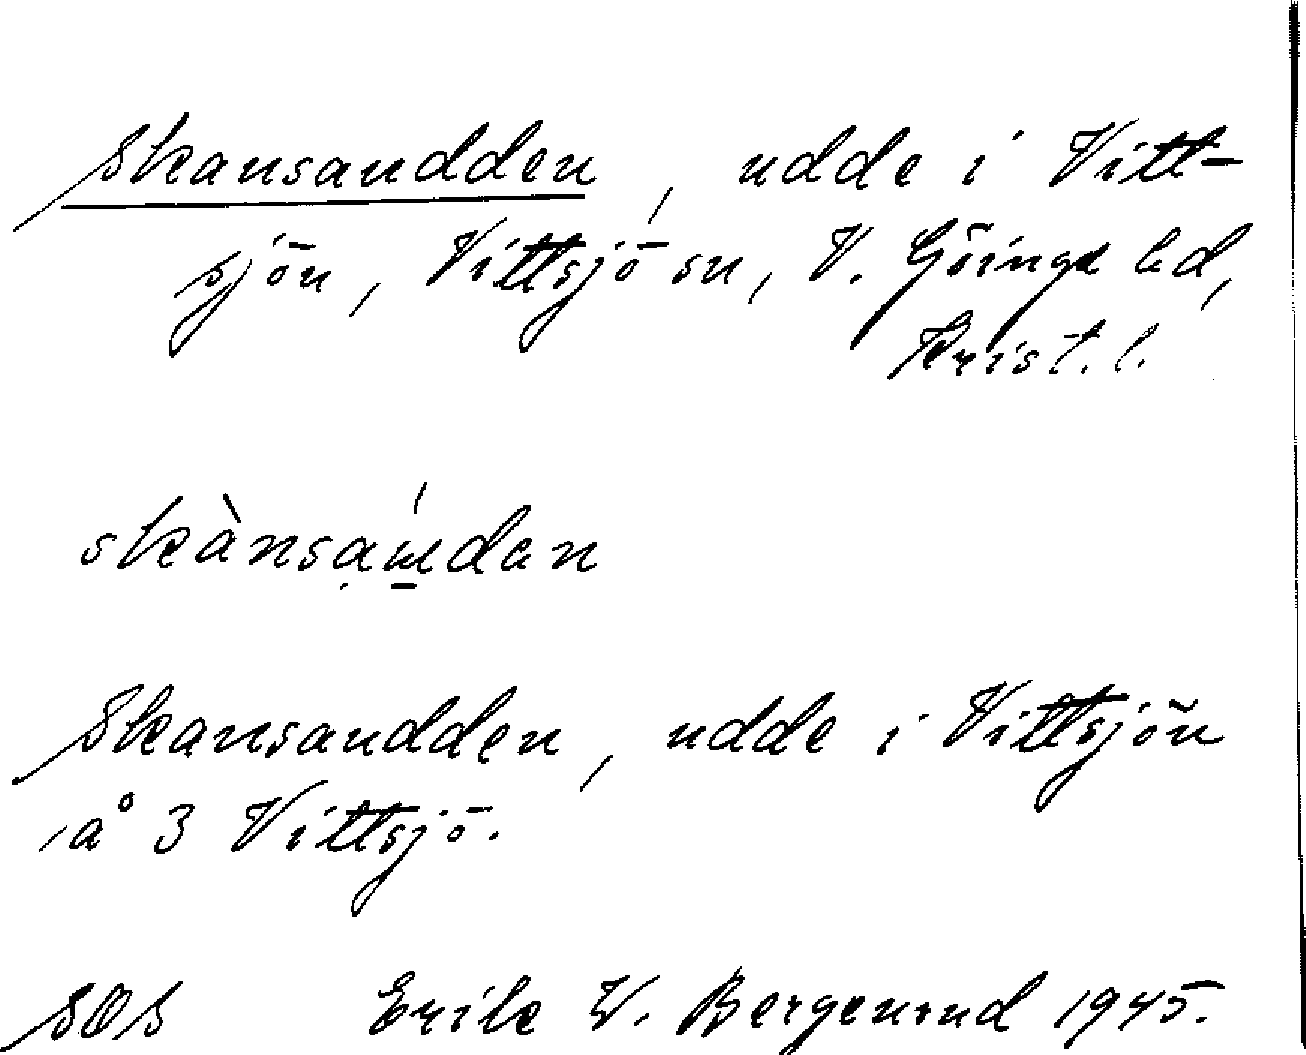 Skansaudden, udde i Vitt-
sjön, Vittsjö sn, V. Göinge hd,
Krist. l.
skànsaúdan
Skansaudden, udde i Vittsjön
å 3 Vittsjö.
SOS Erik W. 1945.